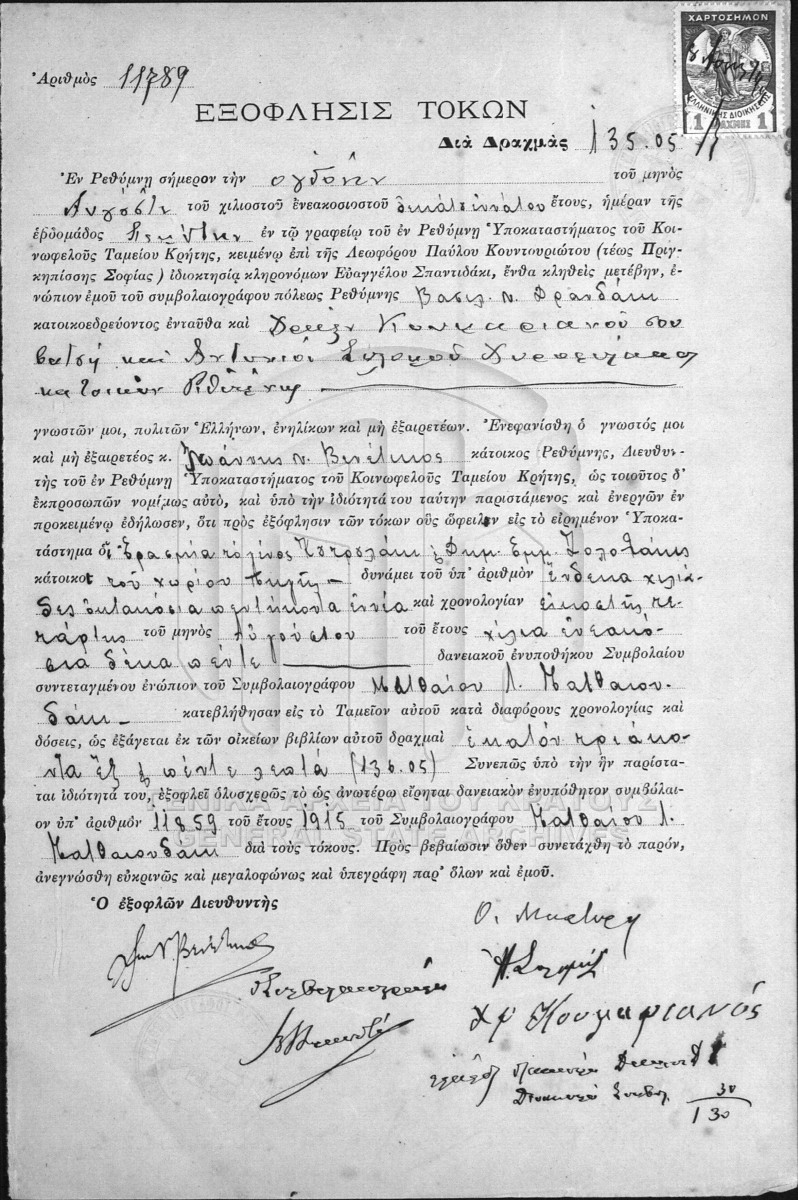 ΧΑΡΤΟΣΗΜΟΝ
ΕΛΛΗΝΙΚΗΣ ΔΙΟΙΚΗΣΕΩΣ
1 ΔΡΑΧΜΕΣ 1
Ἀριθμὸς 11789
ΕΞΟΦΛΗΣΙΣ ΤΟΚΩΝ
Διὰ Δραχμὰς 135.05
Ἐν Ρεθύμνῃ σήμερον τὴν ὀγδόην τοῦ μηνὸς
Αὐγούστου τοῦ χιλιοστοῦ ἐνεακοσιοστοῦ δεκάτου ἐννάτου ἔτους, ἡμέραν τῆς
ἑβδομάδος Πέμπτην ἐν τῷ γραφείῳ τοῦ ἐν Ρεθύμνῃ Ὑποκαταστήματος τοῦ Κοι-
νωφελοῦς Ταμείου Κρήτης, κειμένῳ ἐπὶ τῆς Λεωφόρου Παύλου Κουντουριώτου (τέως Πριγ-
κηπίσσης Σοφίας) ἰδιοκτησίᾳ κληρονόμων Εὐαγγέλου Σπαντιδάκι, ἔνθα κληθεὶς μετέβην, ἐ-
νώπιον ἐμοῦ τοῦ συμβολαιογράφου πόλεως Ρεθύμνης Βασιλ. Ν. Δρανδάκη
κατοικοεδρεύοντος ἐνταῦθα καὶ Κουμαριανοῦ
καὶ Ἀντωνίου
κατοίκων Ρεθύμνης
γνωστῶν μοι, πολιτῶν Ἑλλήνων, ἐνηλίκων καὶ μὴ ἐξαιρετέων. Ἐνεφανίσθη ὁ γνωστός μοι
καὶ μὴ ἐξαιρετέος κ. Ἰωάννης Ν. Βενέτικος κάτοικος Ρεθύμνης, Διευθυν-
τὴς τοῦ ἐν Ρεθύμνῃ Ὑποκαταστήματος τοῦ Κοινωφελοῦς Ταμείου Κρήτης, ὡς τοιοῦτος δ'
ἐκπροσωπῶν νομίμως αὐτό, καὶ ὑπὸ τὴν ἰδιότητά του ταύτην παριστάμενος καὶ ἐνεργῶν ἐν
προκειμένῳ ἐδήλωσεν, ὅτι πρὸς ἐξόφλησιν τῶν τόκων οὓς ὤφειλεν εἰς τὸ εἰρημένον Ὑποκα-
τάστημα οἱ Ἐρασμία Δημ. Ἐμμ.
κάτοικοι τοῦ χωρίου Πηγῆς δυνάμει τοῦ ὑπ' ἀριθμὸν ἕνδεκα χιλιά-
δες ὀκτακόσια πεντήκοντα ἐννέα καὶ χρονολογίαν εἰκοστῆς τε-
τάρτης τοῦ μηνὸς Αὐγούστου τοῦ ἔτους χίλια ἐνεακό-
σια δέκα πέντε δανειακοῦ ἐνυποθήκου Συμβολαίου
συντεταγμένου ἐνώπιον τοῦ Συμβολαιογράφου Ματθαίου Λ. Ματθαιου-
δάκη κατεβλήθησαν εἰς τὸ Ταμεῖον αὐτοῦ κατὰ διαφόρους χρονολογίας καὶ
δόσεις, ὡς ἐξάγεται ἐκ τῶν οἰκείων βιβλίων αὐτοῦ δραχμαὶ ἑκατὸν τριάκο-
ντα ἓξ πέντε λεπτὰ (136.05) Συνεπῶς ὑπὸ τὴν ἣν παρίστα-
ται ἰδιότητά του, ἐξοφλεῖ ὁλοσχερῶς τὸ ὡς ἀνωτέρω εἴρηται δανειακὸν ἐνυπόθητον συμβόλαι-
ον ὑπ' ἀριθμὸν 11859 τοῦ ἔτους 1915 τοῦ Συμβολαιογράφου Ματθαίου Λ.
Ματθαιουδάκη διὰ τοὺς τόκους. Πρὸς βεβαίωσιν ὅθεν συνετάχθη τὸ παρόν,
ἀνεγνώσθη εὐκρινῶς καὶ μεγαλοφώνως καὶ ὑπεγράφη παρ' ὅλων καὶ ἐμοῦ.
ΓΕΝΙΚΑ ΑΡΧΕΙΑ ΤΟΥ ΚΡΑΤΟΥΣ
GENERAL STATE ARCHIVES
Ὁ ἐξοφλῶν Διευθυντὴς
Οἱ Μάρτυρες
Χρ Κουμαριανός
30
130